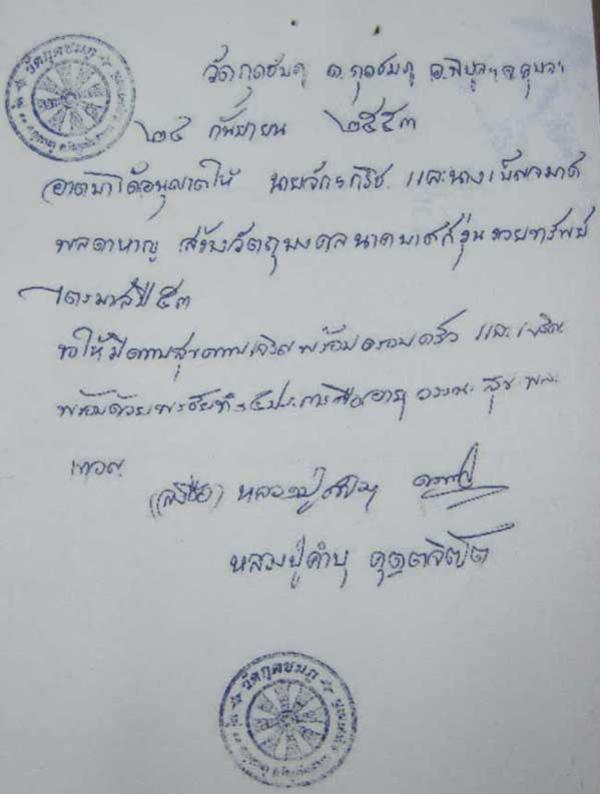 วัดกุดชมภู
วัดกุดชมภู ต.กุดชมภู อ.พิบูลฯ จ.อุบลฯ
๒๔ กันยายน ๒๕๕๓
อาตมาได้อนุญาตให้ นายจักรกริช และนางเบ็ญจมาต
พลดาหาญ สร้างวัตถุมงคลนาคบาศก์รุ่นรวยทรัพย์
ไตรมาสปี ๕๓
ขอให้มีความสุขความเจริญพร้อมครอบครัว และ
พร้อมด้วยพรชัยทั้ง ๔ ประการคือ อายุ วรรณะ สุข พละ
เทอญ
(ลงชื่อ) หลวงปู่คำบุ
หลวงปู่คำบุ คุตฺตจิตฺโต
วัดกุดชมภู